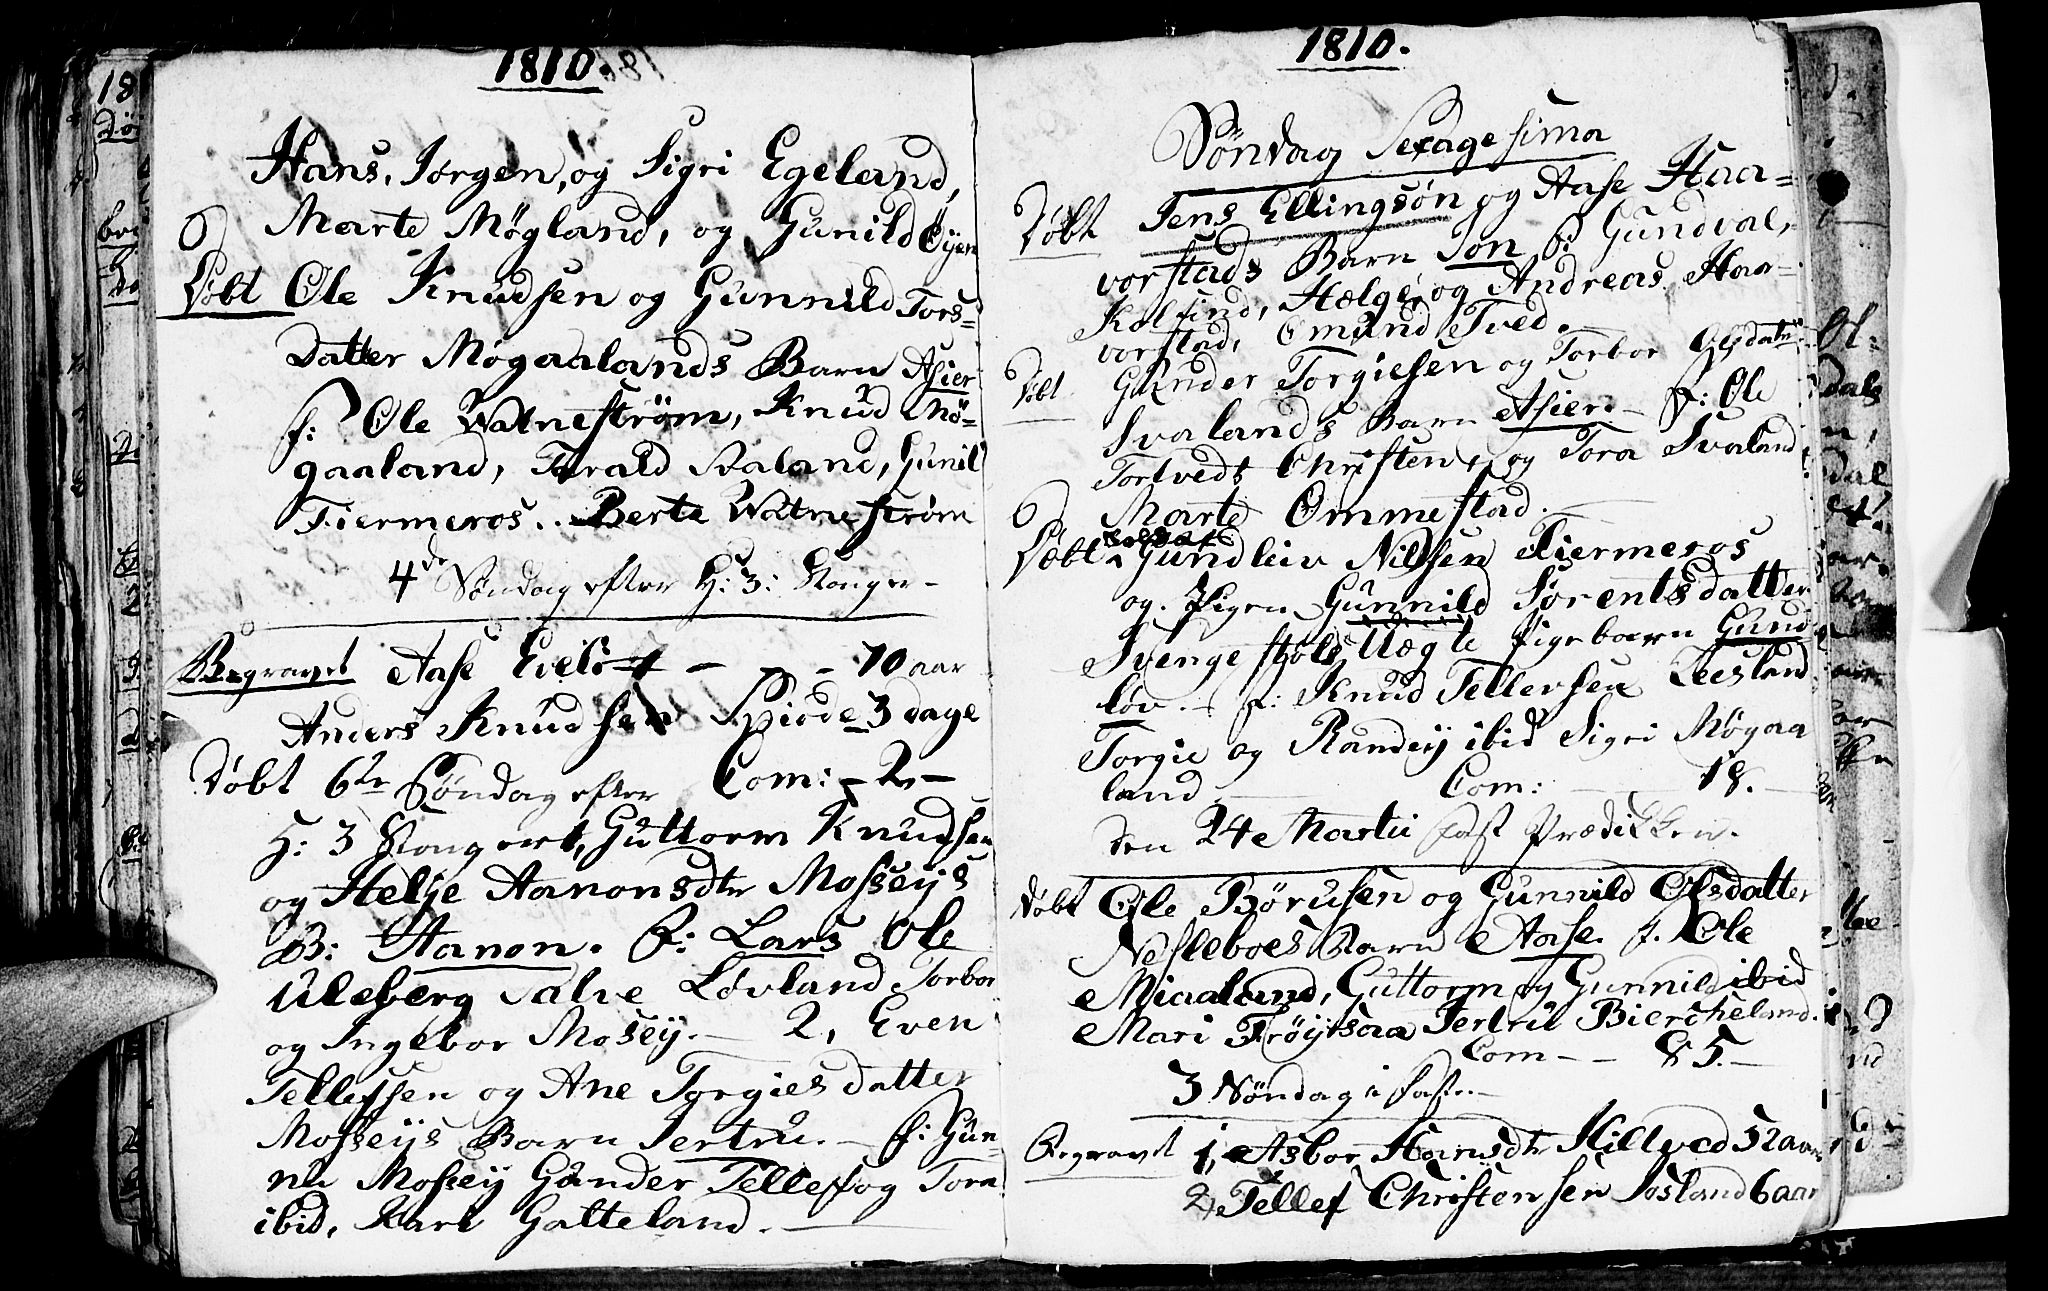 1810.
Hans, Jørgen, og Sigri Egeland,
Marte Møgland, og Gunild Øyen
Døbt Ole Knudsen og Gunnild Tors=
datter Møgaalands Barn Asier
f: Ole Watneström, Knud Mö=
gaaland, Tarald Aaland, Gunil
Fiermeros. Berte Watneström
4de Søndag efter H: 3: Konger
Begravet Aase Evelö - - 70 aar
Anders Knudsen Spiode 3 dage
Døbt 6te Søndag efter Com: - 2 -
H: 3 Konger 1, Guttorm Knudsen
og Helje Aanonsdtr Mosseys
B: Aanon. F: Lars Ole
Uleberg Salve Løvland Torbor
og Ingebor Mosey. - 2, Even
Tellefsen og Ane Torgiesdatter
Mosseys Barn Jertru. - f: Gun=
ne Mossey Gunder Tellef og Tora
ibid, Kari Gatteland.
1810.
Søndag Sexagesima
Døbt Jens Ellingsøn og Aase Haa=
vorstads Barn Jon f: Gundval,
Kolfind, Hælge, og Andreas Haa=
vorstad, Omund Tved.
Døbt Gunder Torgiesen og Torbor Olsdatr
Svalands Barn Asier - F: Ole
Tortvedt Christen, og Tora Svaland
Marte Ommestad.
Døbt Soldat Gundleiv Nilssen Fiermeros
og Pigen Gunnild Sørentsdatter
Svengestøls Uægte Pigebarn Gund
løv. - f: Knud Tellevsen Leesland
Torgie og Randey ibid Sigri Møgaa
land Com: 18.
den 24e Martii Fast Prædikken.
Døbt Ole Börusen og Gunnild Olsdatter
Nesleboes Barn Aase. f. Ole
Miaaland, Guttorm og Gunnild ibid
Mari Frøysaa Jertru Biercheland.
Com - - 85. -
3 Søndag i Faste.
Begravet 1, Asbor Hansdtr Hilleved 52 aar
2, Tellef Christensen Josland 6 aar